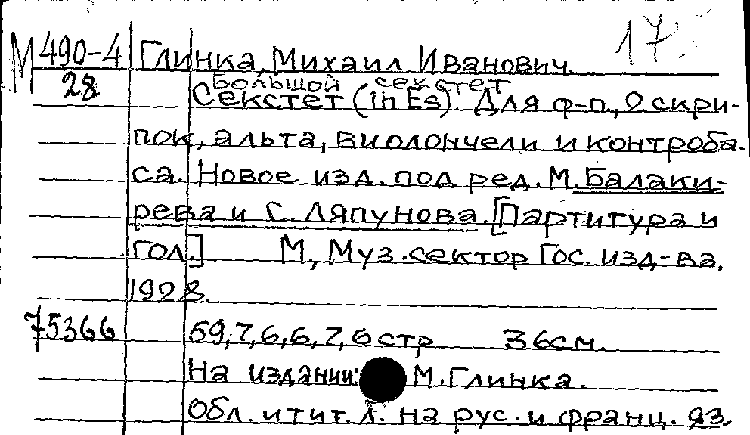 М 490-4 Глинка, Михаил Иванович. 17
28 Большой секстет
Секстет (in Es). Для ф-п., 2 скри-
пок, альта, виолончели и контроба-
са. Новое изд. под ред. М. Балаки-
рева и С. Ляпунова. [Партитура и
гол.] М., Муз. сектор Гос. изд-ва,
1928.
75366 59, 7, 6, 6, 7, 6 стр 36 см.
На издании: М. Глинка.
Обл. и тит. л. на рус. и франц. яз.